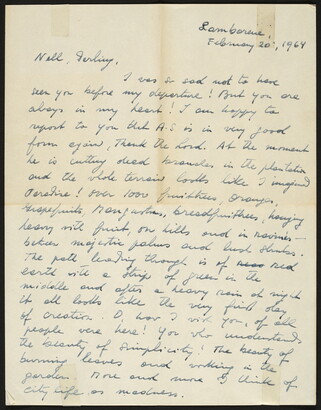 Lambarene,
February 20, 1964
Nell, Darling,
I was so sad not to have
seen you before my departure! But you are
always in my heart! I am happy to
report to you that A.S is in very good
form again, Thank the Lord. At the moment
he is cutting dead branches in the plantation
and the whole terrain looks like I imagined
Paradise! Over 1000 fruittrees, oranges,
grapefruits, Mangustins, breadfruittrees, hanging
heavy with fruit, on hills and in ravines -
between majestic palms and lush shrubs.
The path leading through is of red
earth with a strip of green in the
middle and after a heavy rain at night
it all looks like the very first day
of creation. O, how I wish you, of all
people were here! You who understands
the beauty of simplicity! The beauty of
burning leaves and working in the
garden. More and more I think of
City life as madness.